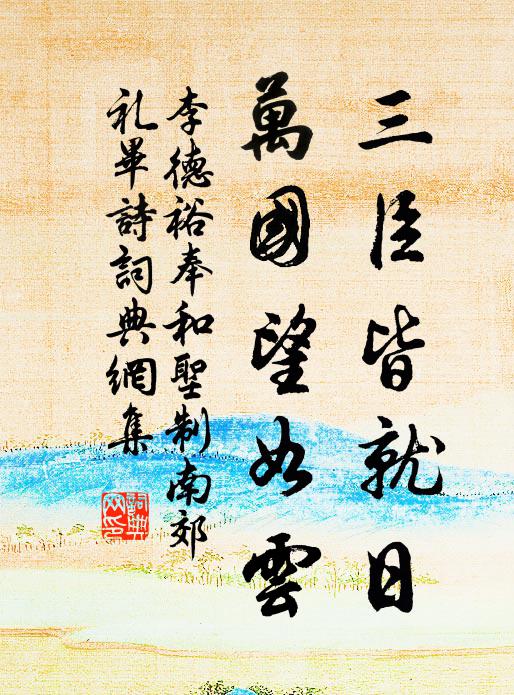 三臣皆就日
萬國望如雲
李德裕奉和聖制南郊
礼畢詩詞典網集